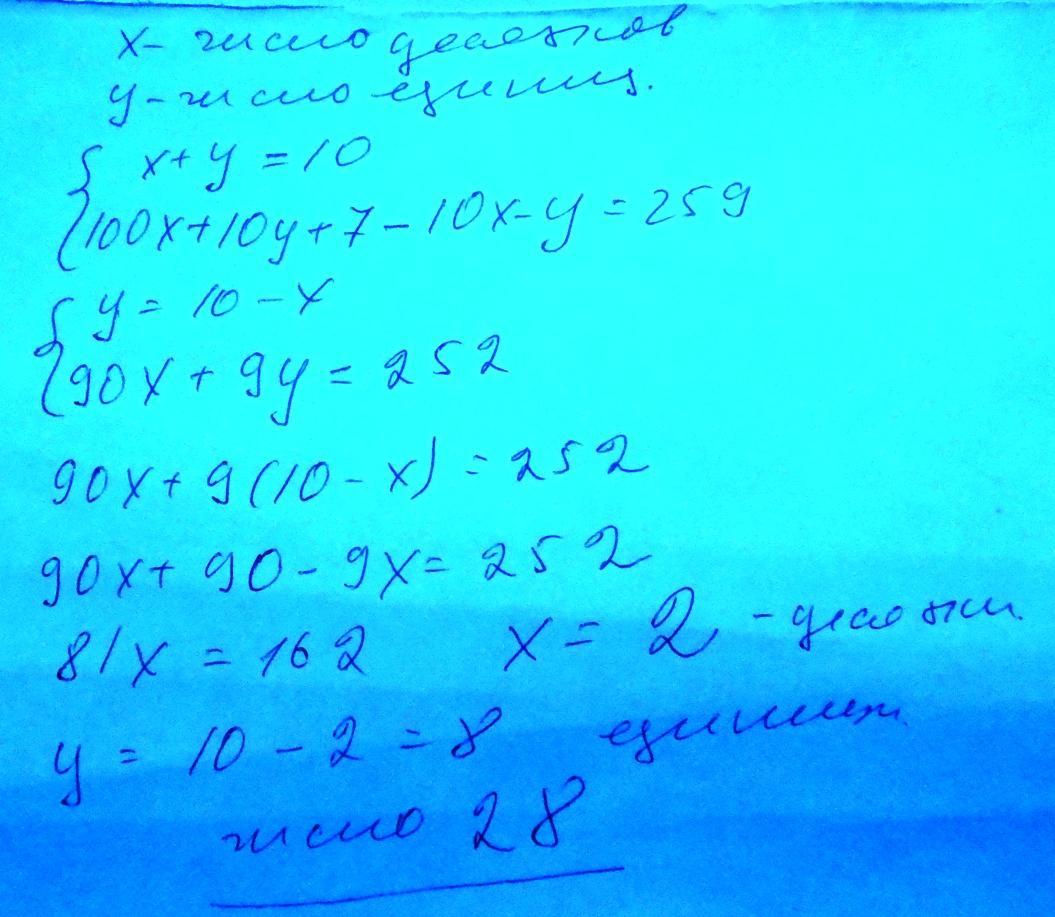 x - число десятков
y - число единиц.
{ x + y = 10
{ 100x + 10y + 7 - 10x - y = 259
{ y = 10 - x
{ 90x + 9y = 252
90x + 9(10 - x) = 252
90x + 90 - 9x = 252
81x = 162 x = 2 - десятки.
y = 10 - 2 = 8 единицы.
число 28